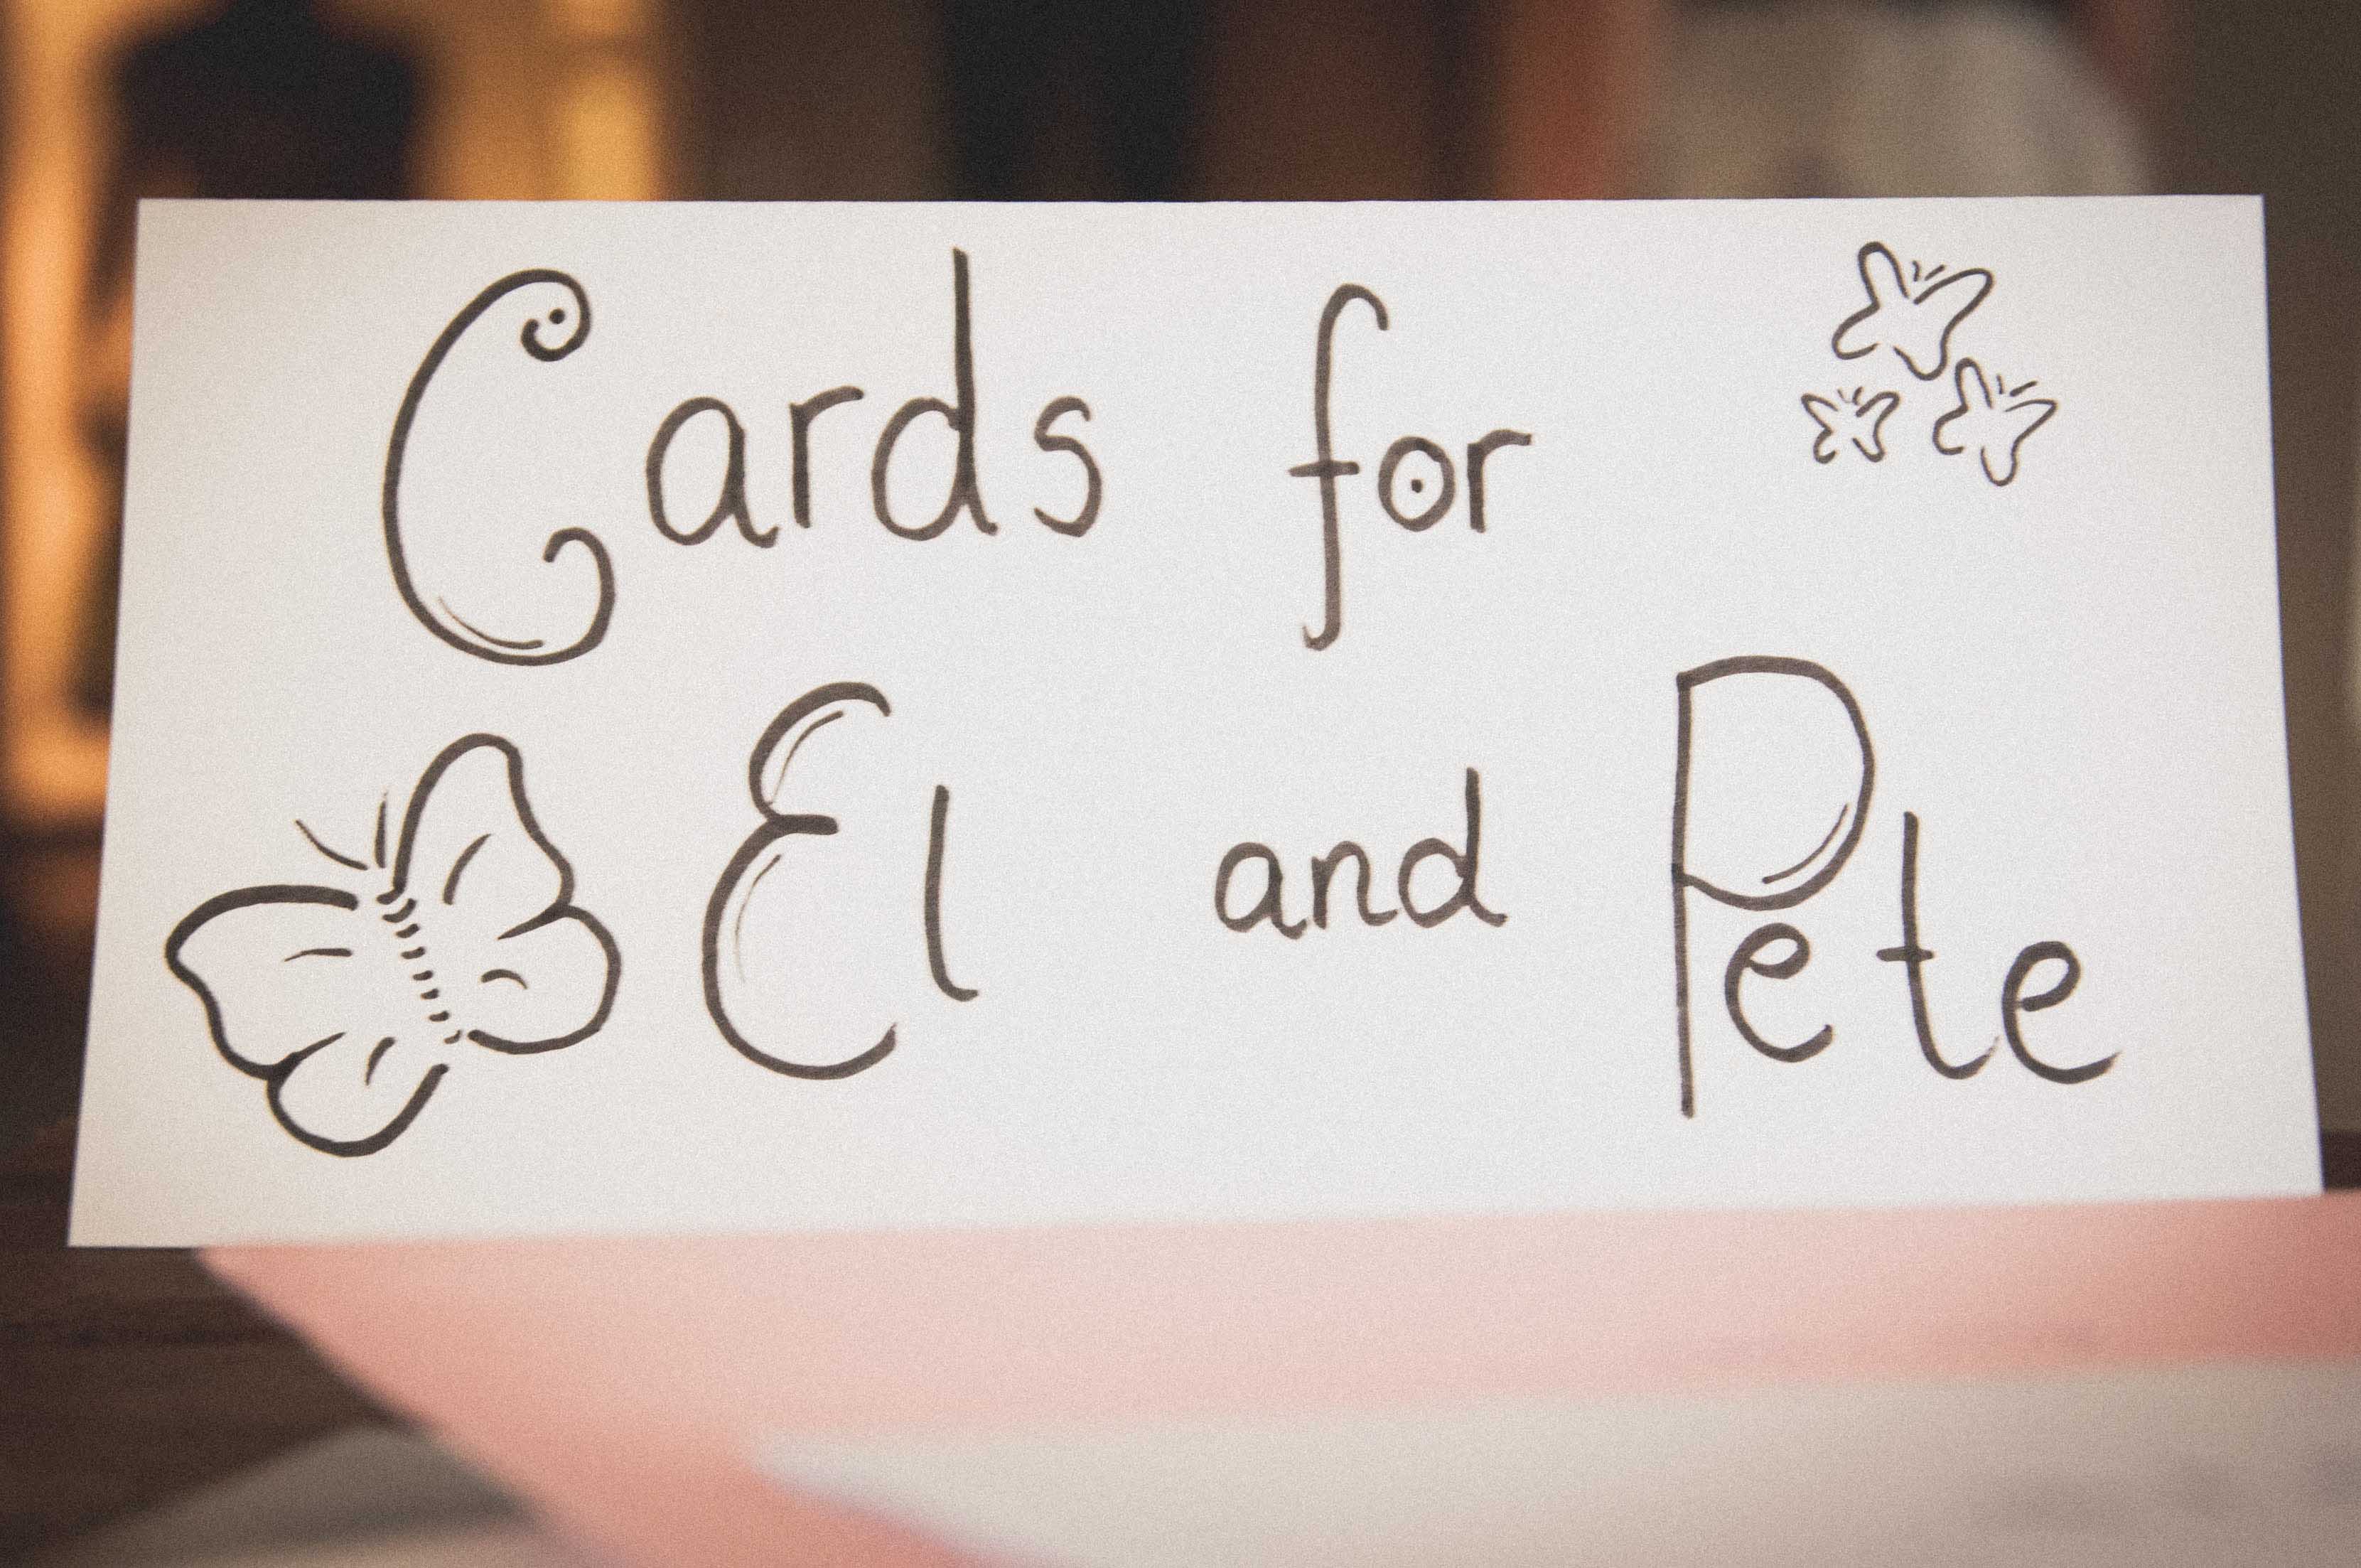 Cards for
El and Pete